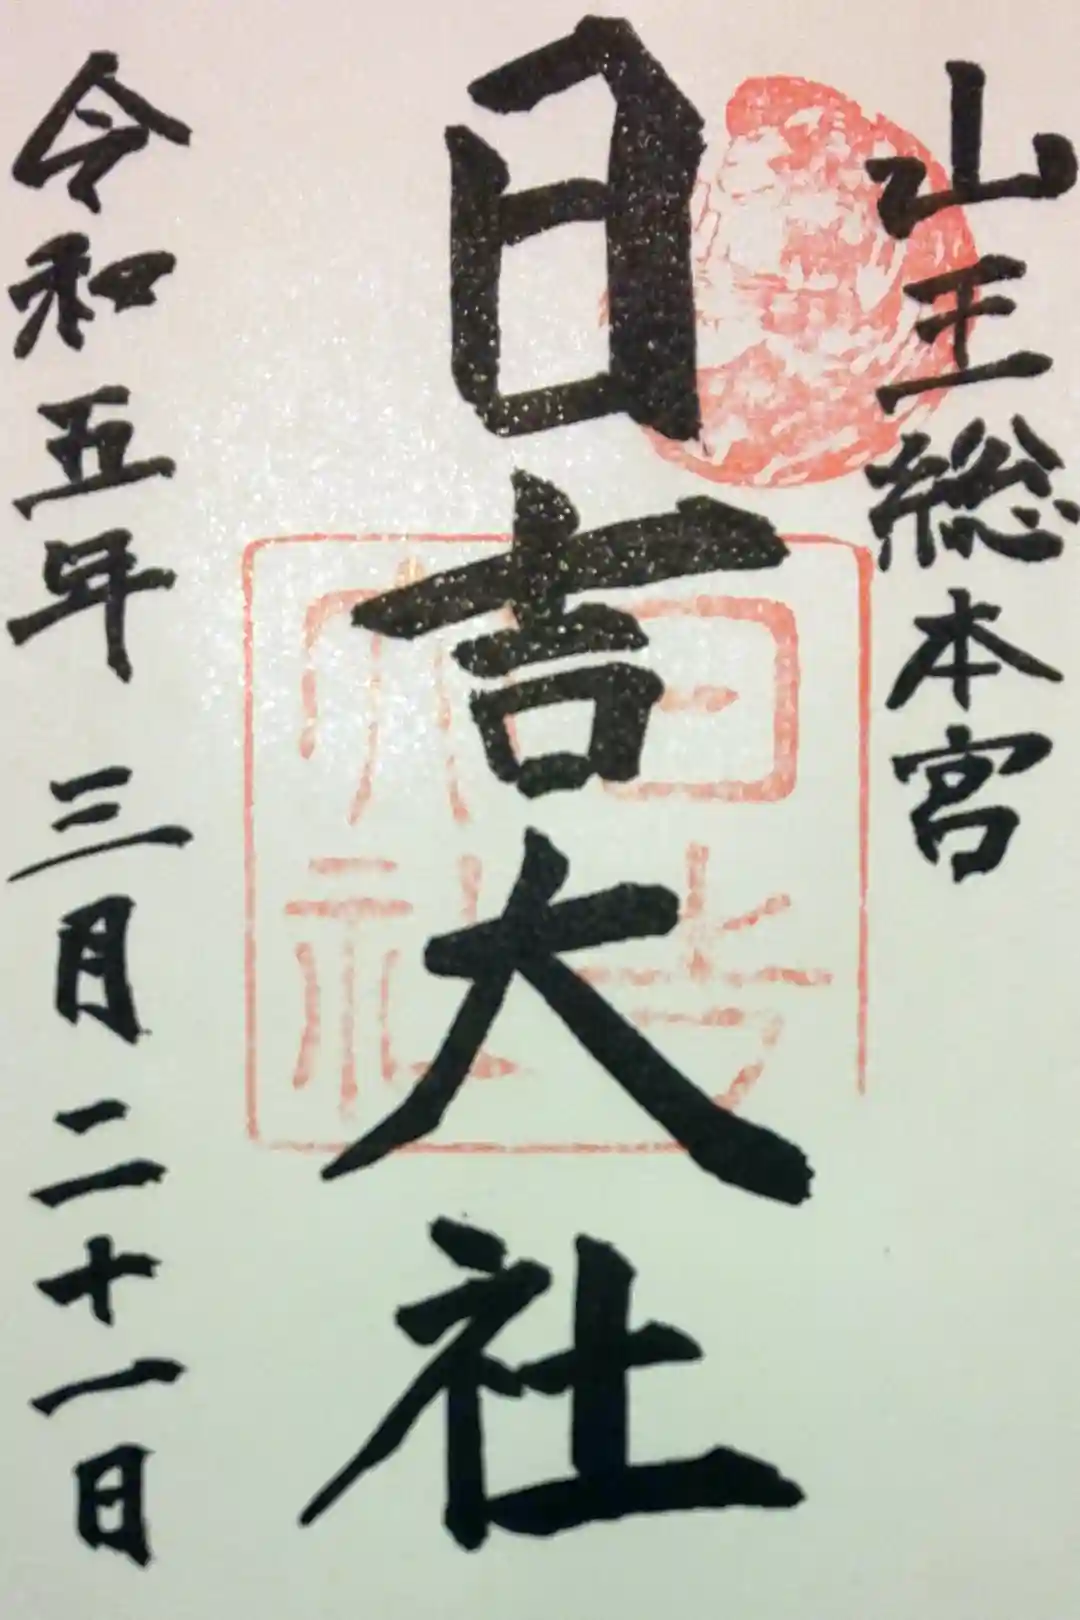 山王総本宮
日吉大社
日吉大社
令和五年 三月二十一日